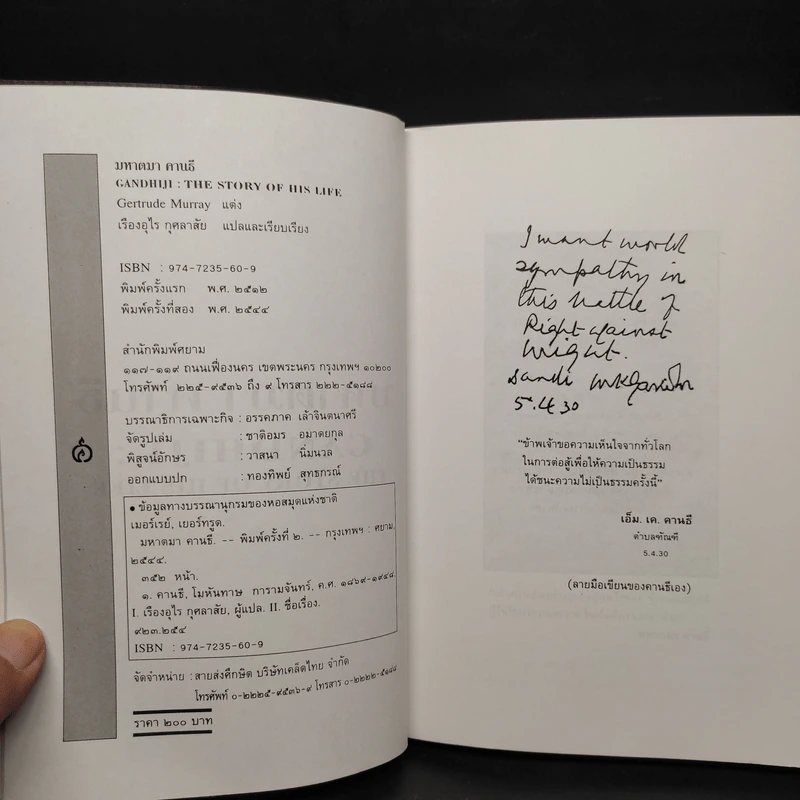 มหาตมา คานธี
GANDHIJI : THE STORY OF HIS LIFE
Gertrude Murray แต่ง
เรืองอุไร กุศลาสัย แปลและเรียบเรียง
ISBN : 974-7235-60-9
พิมพ์ครั้งแรก พ.ศ. ๒๕๑๒
พิมพ์ครั้งที่สอง พ.ศ. ๒๕๔๔
สำนักพิมพ์ศยาม
๑๑๗-๑๑๙ ถนนเฟื่องนคร เขตพระนคร กรุงเทพฯ ๑๐๒๐๐
โทรศัพท์ ๒๒๕-๙๕๓๖ ถึง ๙ โทรสาร ๒๒๒-๕๑๘๘
บรรณาธิการเฉพาะกิจ : อรรคภาค เล้าจินตนาศรี
จัดรูปเล่ม : ชาติอมร อมาตยกุล
พิสูจน์อักษร : วาสนา นิ่มนวล
ออกแบบปก : ทองทิพย์ สุทธกรณ์
● ข้อมูลทางบรรณานุกรมของหอสมุดแห่งชาติ
เมอร์เรย์, เยอร์ทรูด.
มหาตมา คานธี. -- พิมพ์ครั้งที่ ๒. -- กรุงเทพฯ : ศยาม,
๒๕๔๔.
๓๕๒ หน้า.
๑. คานธี, โมหันทาษ การามจันทร์, ค.ศ. ๑๘๖๙-๑๙๔๘
I. เรืองอุไร กุศลาสัย, ผู้แปล. II. ชื่อเรื่อง.
๙๒๓.๒๕๔
ISBN : 974-7235-60-9
จัดจำหน่าย : สายส่งศึกษิต บริษัทเคล็ดไทย จำกัด
โทรศัพท์ ๐-๒๒๒๕-๙๕๓๖-๙ โทรสาร ๐-๒๒๒๒-๕๑๘๘
ราคา ๒๐๐ บาท
I want world
sympathy in
this battle of
Right against
might.
Dandi MKGandhi
5.4.30
"ข้าพเจ้าขอความเห็นใจจากทั่วโลก
ในการต่อสู้เพื่อให้ความเป็นธรรม
ได้ชนะความไม่เป็นธรรมครั้งนี้"
เอ็ม. เค. คานธี
ตำบลฑัณฑี
5.4.30
(ลายมือเขียนของคานธีเอง)